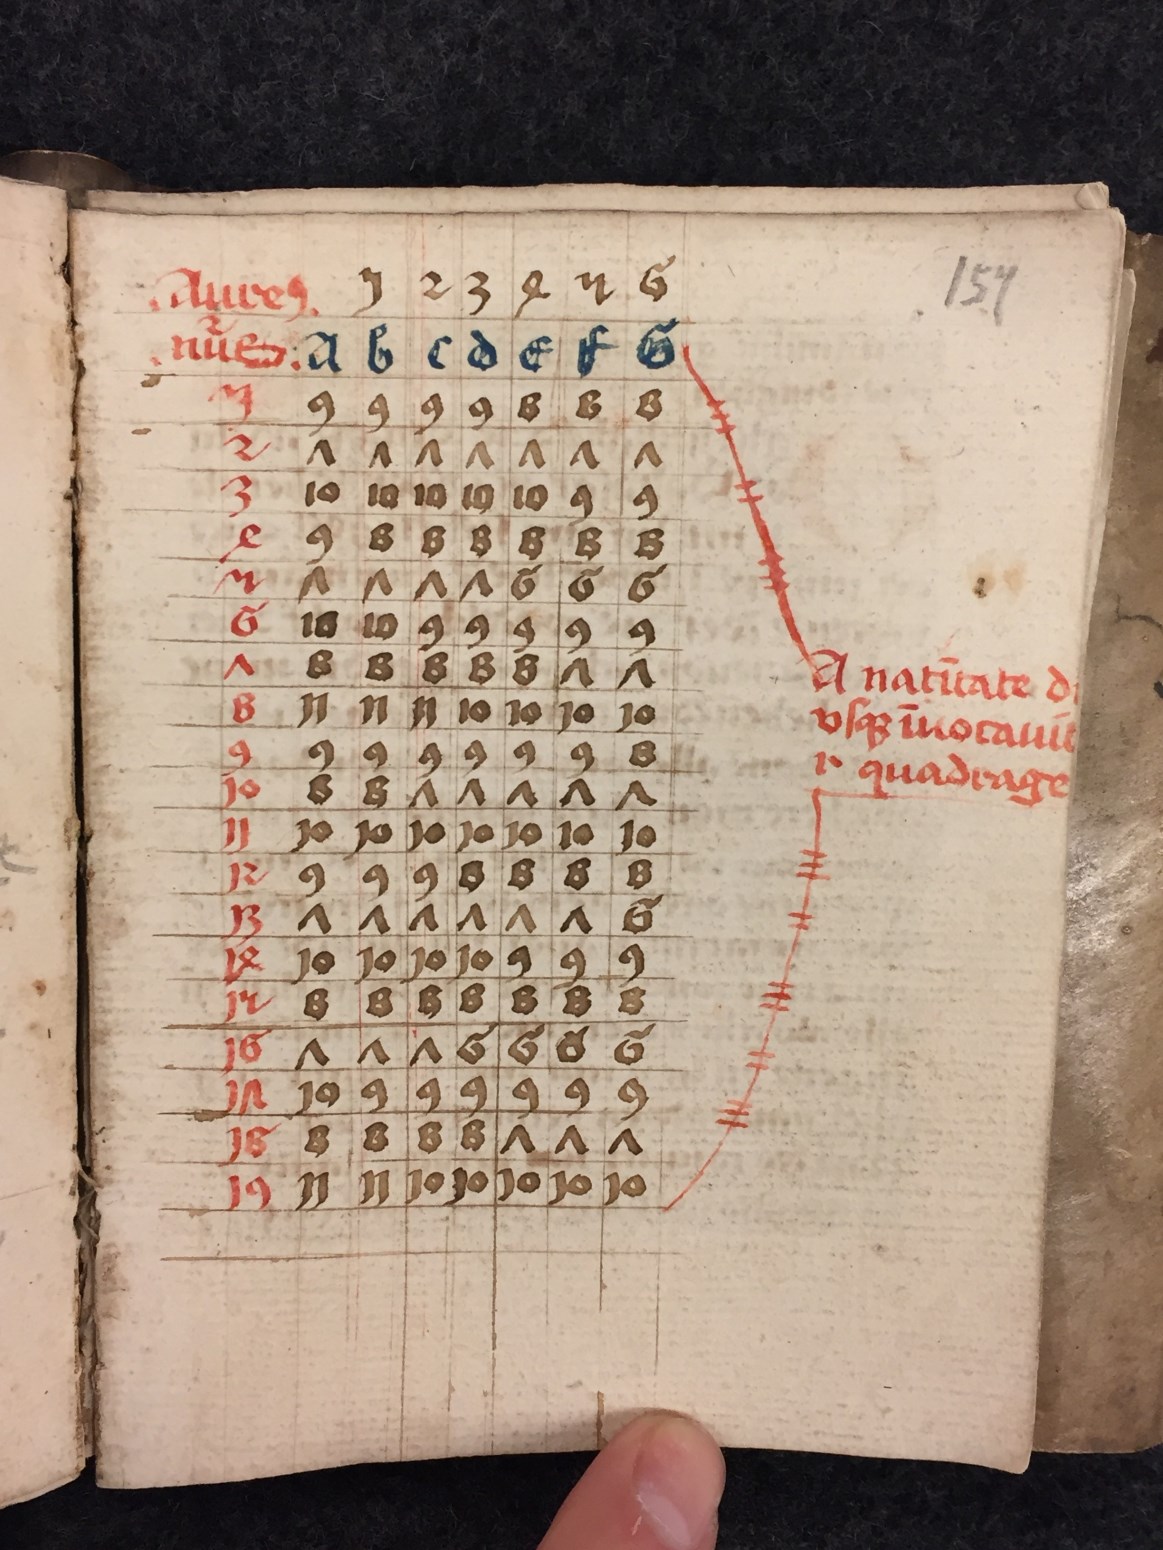 Aureꝰ 1 2 3 4 5 6
nũs A b c d e f G
1 9 9 9 9 8 8 8
2 7 7 7 7 7 7 7
3 10 10 10 10 10 9 9
4 9 8 8 8 8 8 8
5 7 7 7 7 6 6 6
6 10 10 9 9 9 9 9
7 8 8 8 8 8 7 7
8 11 11 11 10 10 10 10
9 9 9 9 9 9 9 8
10 8 8 7 7 7 7 7
11 10 10 10 10 10 10 10
12 9 9 9 8 8 8 8
13 7 7 7 7 7 7 6
14 10 10 10 10 9 9 9
15 8 8 8 8 8 8 8
16 7 7 7 6 6 6 6
17 10 9 9 9 9 9 9
18 8 8 8 8 7 7 7
19 11 11 10 10 10 10 10
A natũtate
vsqꝫ ĩuocauit
quadrage